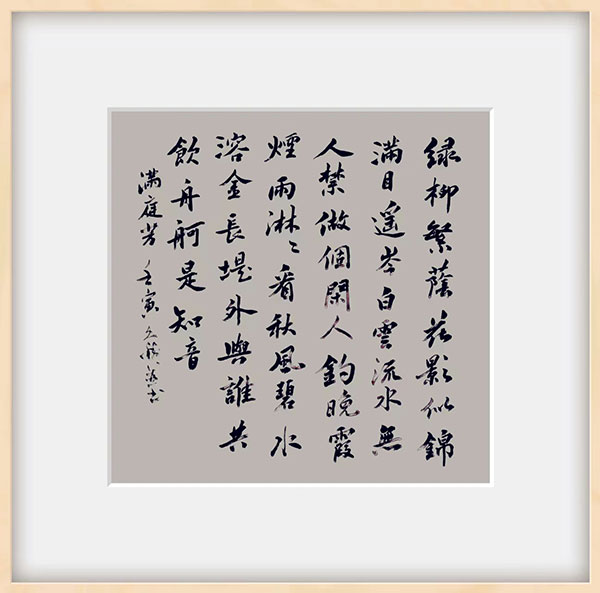 绿柳繁蔭花影似錦
滿目遥岑白雲流水無
人禁做個閑人釣晚霞
煙雨淋〻看秋風碧水
溶金長堤外與誰共
飲舟舸是知音
满庭芳 壬寅